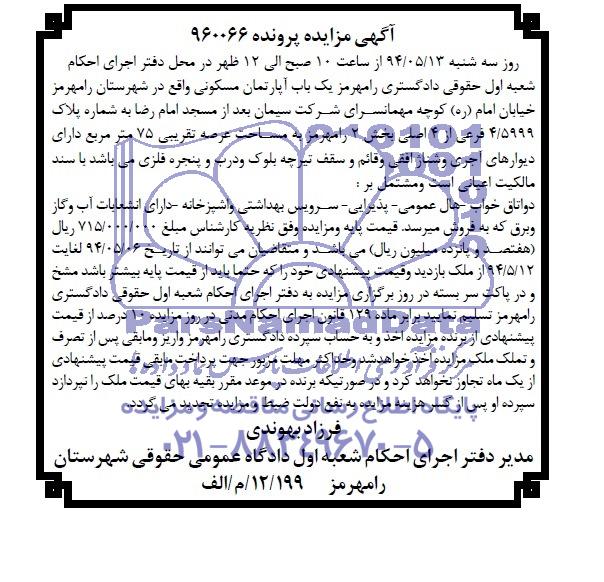 آگهی مزایده پرونده ۹۶۰۰۶۶
روز سه شنبه ۹۴/۰۵/۱۳ از ساعت ۱۰ صبح الی ۱۲ ظهر در محل دفتر اجرای احکام
شعبه اول حقوقی دادگستری رامهرمز یک باب آپارتمان مسکونی واقع در شهرستان رامهرمز
خیابان امام (ره) کوچه مهمانسرای شرکت سیمان بعد از مسجد امام رضا به شماره پلاک
۴/۵۹۹۹ فرعی از ۴ اصلی بخش ۲ رامهرمز به مساحت عرصه تقریبی ۷۵ متر مربع دارای
دیوارهای آجری وشناژ افقی وقائم و سقف تیرچه بلوک ودرب و پنجره فلزی می باشد با سند
مالکیت اعیانی است ومشتمل بر :
دواتاق خواب -هال عمومی- پذیرایی- سرویس بهداشتی واشپزخانه -دارای انشعابات آب وگاز
وبرق که به فروش میرسد. قیمت پایه ومزایده وفق نظریه کارشناس مبلغ ۷۱۵/۰۰۰/۰۰۰ ریال
(هفتصد و پانزده میلیون ریال) می باشد و متقاضیان می توانند از تاریخ ۹۴/۰۵/۰۶ لغایت
۹۴/۵/۱۲ از ملک بازدید وقیمت پیشنهادی خود را که حتما باید از قیمت پایه بیشتر باشد مشخ
و در پاکت سر بسته در روز برگزاری مزایده به دفتر اجرای احکام شعبه اول حقوقی دادگستری
رامهرمز تسلیم نمایید برابر ماده ۱۲۹ قانون اجرای احکام مدنی در روز مزایده ۱۰ درصد از قیمت
پیشنهادی از برنده مزایده اخذ و به حساب سپرده دادگستری رامهرمز واریز ومابقی پس از تصرف
و تملک ملک مزایده اخذ خواهدشد وحداکثر مهلت مزبور جهت پرداخت مابقی قیمت پیشنهادی
از یک ماه تجاوز نخواهد کرد و در صورتیکه برنده در موعد مقرر بقیه بهای قیمت ملک را نپردازد
سپرده او پس از کسر هزینه مزایده به نفع دولت ضبط و مزایده تجدید می گردد.
فرزاد بهوندی
مدیر دفتر اجرای احکام شعبه اول دادگاه عمومی حقوقی شهرستان
رامهرمز ۱۲/۱۹۹/م/الف
ParsNamadData
پایگاه اطلاع رسانی مناقصه و مزایده
۰۲۱-۸۸۳۴۹۶۷۰-۵